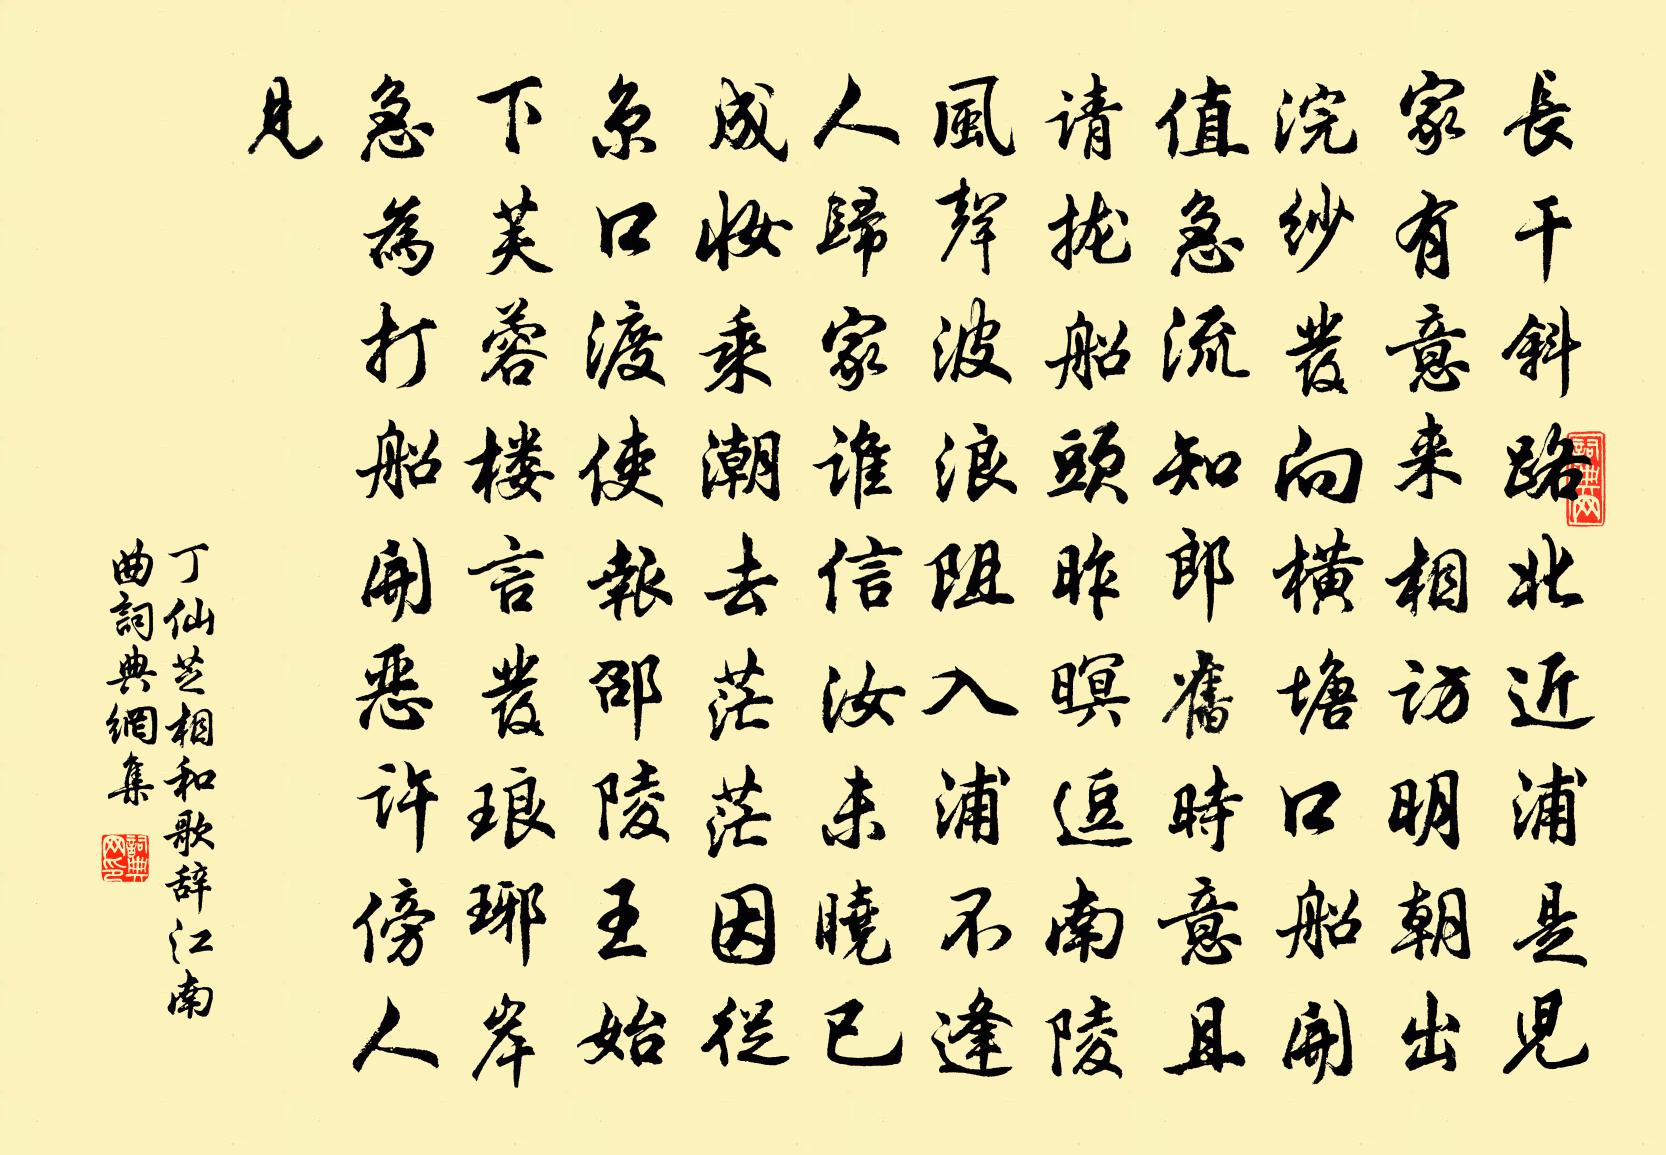 長干斜路北近浦是児
家有意来相訪明朝出
浣紗發向橫塘口船開
值急流知郎舊時意且
请拢船頭昨暝逗南陵
風聲波浪阻入浦不逢
人歸家谁信汝未曉已
成妝乘潮去茫茫因從
京口渡使報邵陵王始
下芙蓉楼言發琅琊岸
急為打船開惡許傍人
見
丁仙芝相和歌辞江南
曲詞典網集
詞典网
詞典网印